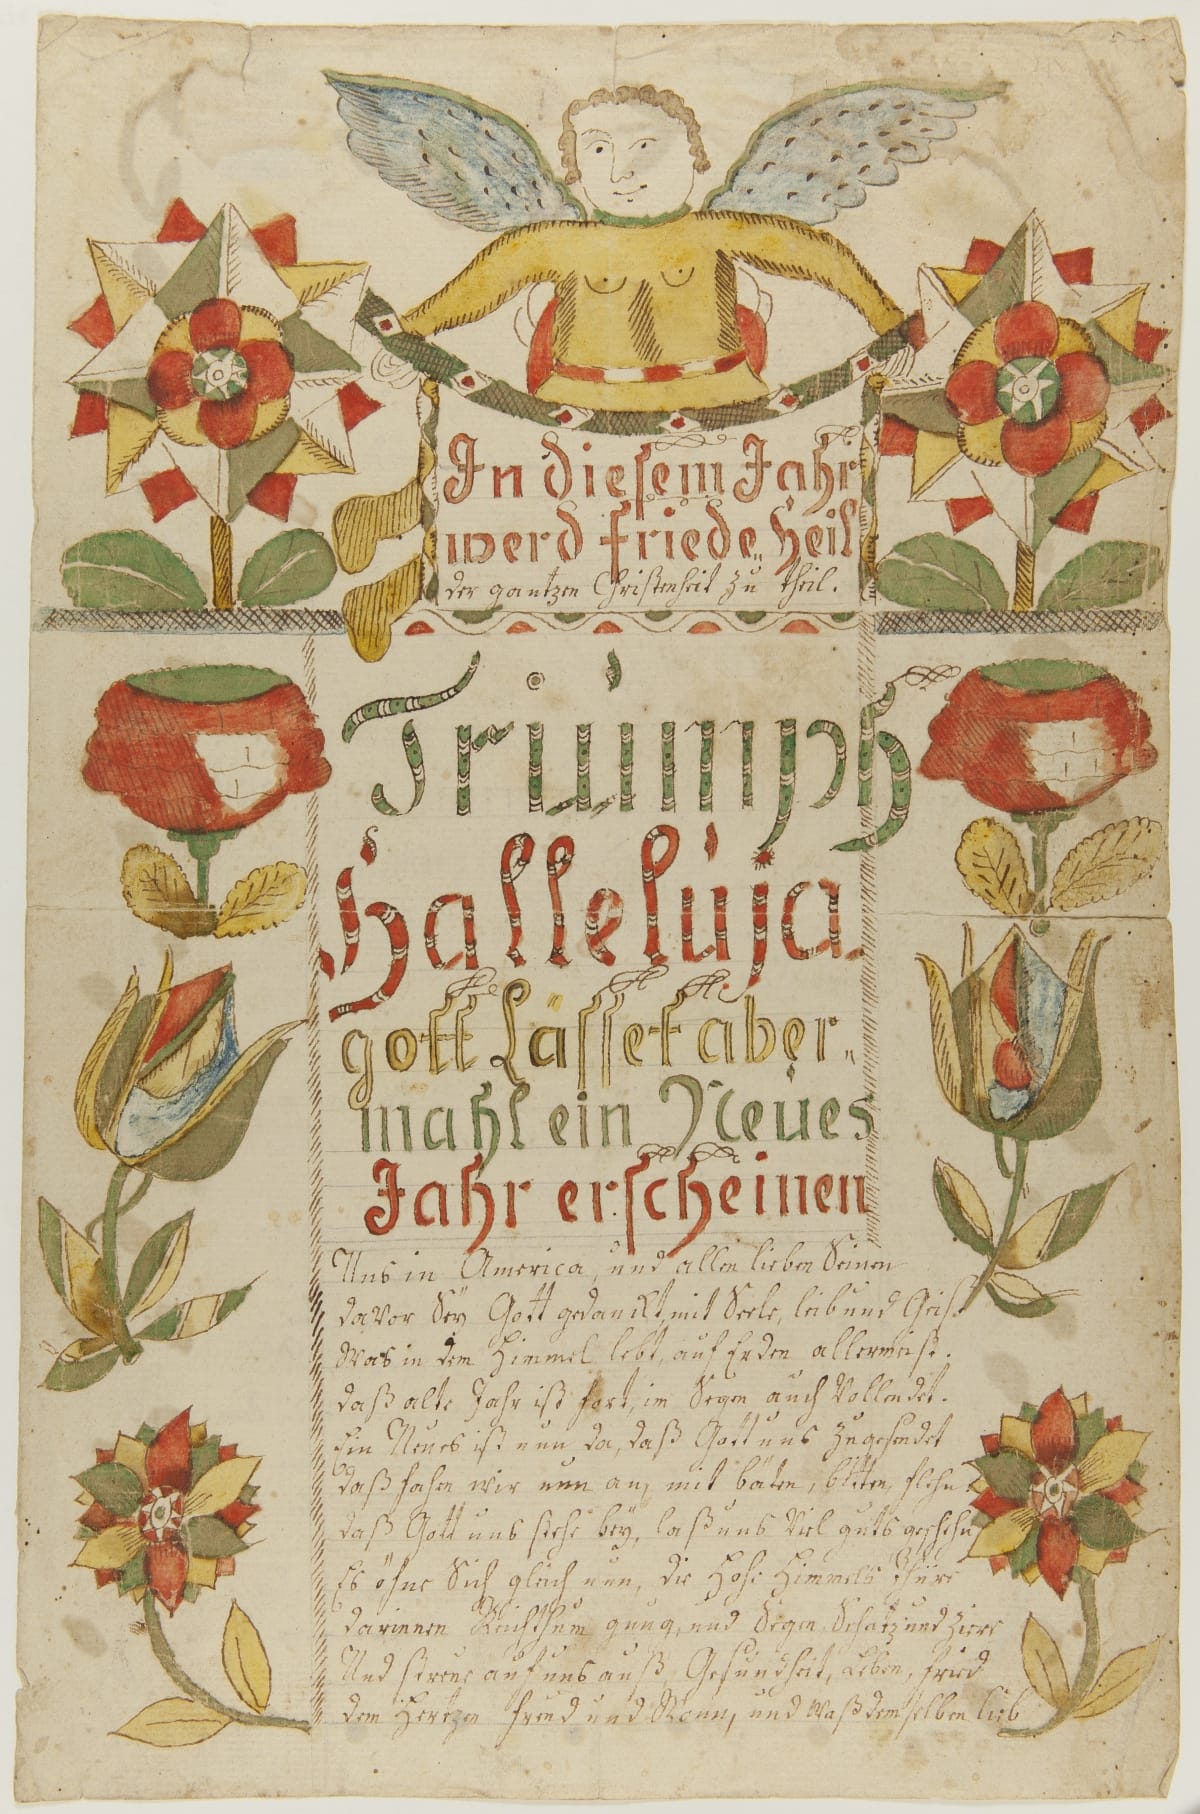 In diesem Jahr
werd friede„ Heil
der gantzen Christenheit zu theil.
Triümph
Halleluja
gott Lässet aber„
mahl ein Neues
Jahr erscheinen
Uns in America, und allen lieben Seinen
davor Seÿ Gott gedanckt, mit Seele, leib und Geist
Was in dem Himmel lebt, auf Erden allermeist.
daß alte Jahr ist fort, im Segen auch Vollendet.
Ein Neues ist nun da, daß Gott uns Zugesendet
daß fahen wir nun an, mit bäten, bitten, flehn
daß Gott uns stehe beÿ, laß uns Viel guts geschehn
Es öhne Sich gleich nun, die Hohe Himmels Thüre
darinnen Reichthum gnug, und Segen Schatz und Ziere
Und streue auf uns auß, Gesundheit, Leben, fried
dem Hertzen freud und Wonn, und waß demselben lieb